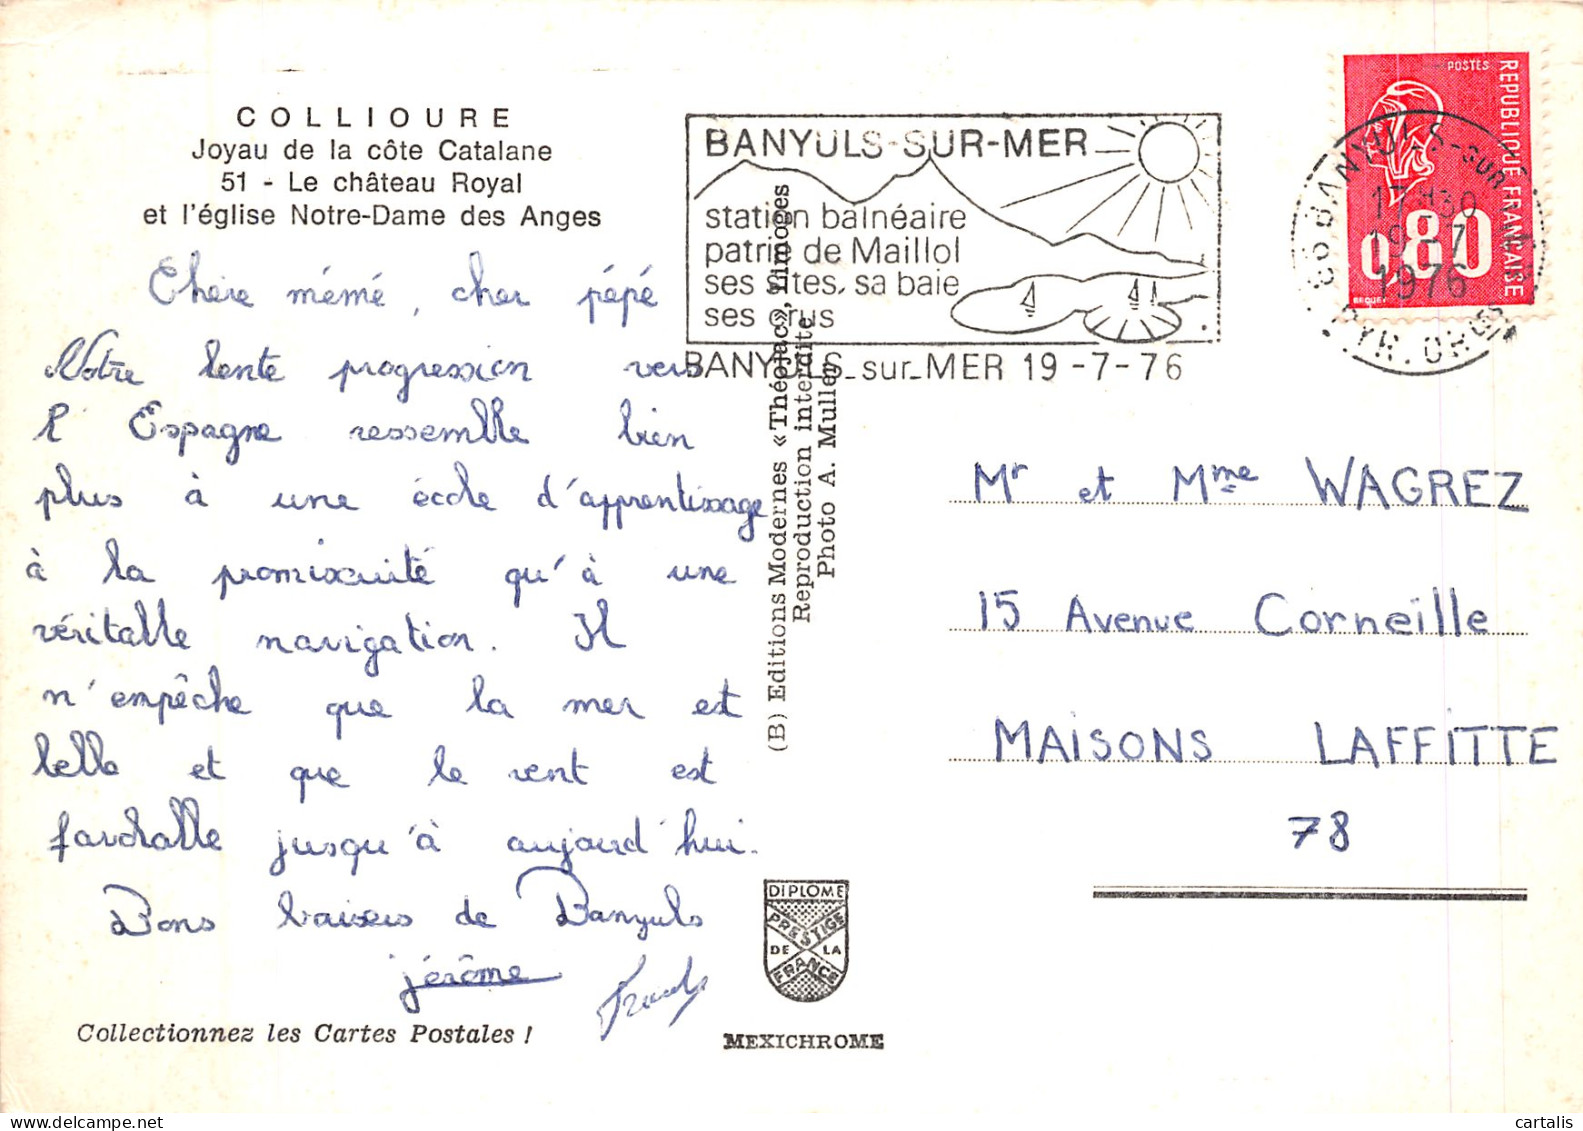 COLLIOURE
Joyau de la côte Catalane
51 - Le château Royal
et l'église Notre-Dame des Anges
Chère mémé, cher pépé
Notre lente progression vers
l'Espagne ressemble bien
plus à une école d'apprentissage
à la promixuité qu'à une
véritable navigation. Il
n'empêche que la mer est
belle et que le vent est
favorable jusqu'à aujourd'hui.
Bons baisers de Banyuls
jérôme
Collectionnez les Cartes Postales !
BANYULS-SUR-MER
station balnéaire
patrie de Maillol
ses sites, sa baie
ses crus
BANYULS_sur_MER 19-7-76
(B) Editions Modernes «Théojac», Limoges
Reproduction interdite
Photo A. Muller
DIPLOME
PRESTIGE
DE LA
FRANCE
MEXICHROME
POSTES
REPUBLIQUE FRANÇAISE
0,80
BEQUET
66 BANYULS-SUR-MER
17H30
19-7
1976
PYR. OR.
Mr et Mme WAGREZ
15 Avenue Corneille
MAISONS LAFFITTE
78
cartalis